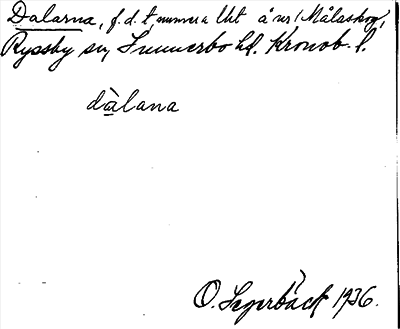 Dalarna, f.d. t, numera lht å nr 1 Målaskog,
Ryssby sn, Sunnerbo hd. Kronob. l.
dàlana
O. Segerbäck 1936.